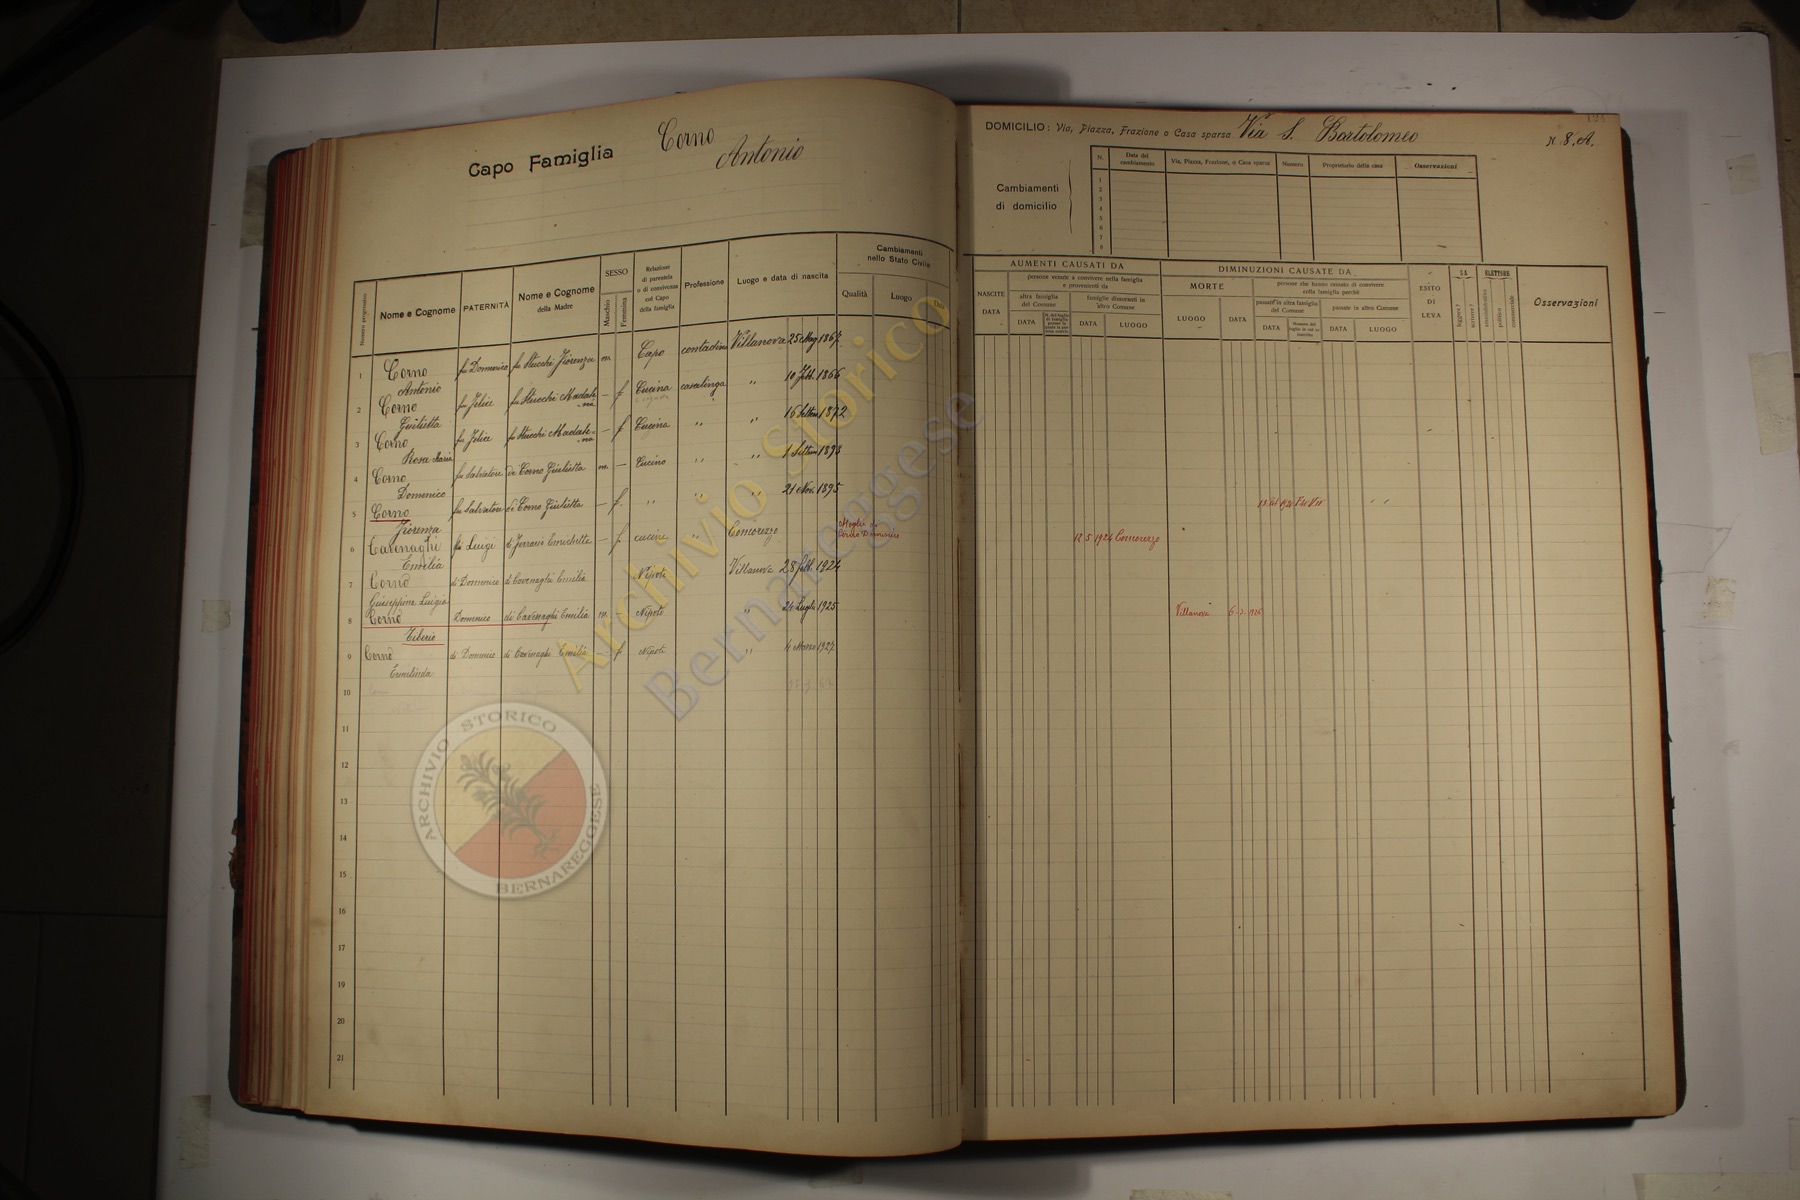 Capo Famiglia Corno
Antonio
Numero progressivo
Nome e Cognome
PATERNITÀ
Nome e Cognome
della Madre
SESSO
Maschio
Femmina
Relazione
di parentela
o di convivenza
col Capo
della famiglia
Professione
Luogo e data di nascita
Cambiamenti
nello Stato Civile
Qualità
Luogo
Data
1 Corno fu Domenico fu Stucchi Fiorenza m. Capo contadino Villanova 25 Mag 1867
Antonio
2 Corno fu Felice fu Stucchi Madale - f Cucina casalinga " 10 Febb. 1866
-na
Giulietta
3 Corno fu Felice fu Stucchi Madale- - f Cucina " " 16 Settem 1872
-na
Rosa Maria
4 Corno fu Salvatore di Corno Giulietta m. - Cucino " " 1 Settem 1893
Domenico
5 Corno fu Salvatore di Corno Giulietta - f. " " " 21 Nov. 1895
Fiorenza
6 Cavenaghi Luigi di Ferrario Enrichetta - f cucina " Comorezzo Moglie di
Corno Domenico
Emilia
7 Corno di Domenico di Cavenaghi Emilia Nipote Villanova 28 febb. 1924
Giuseppina Luigia
8 Corno Domenico di Cavenaghi Emilia m. - Nipote " 24 Luglio 1925
Tiberio
9 Corno di Domenico di Cavenaghi Emilia - f Nipote " 4 Marzo 1927
Ermelinda
10
11
12
13
14
15
16
17
18
19
20
21
ARCHIVIO STORICO
BERNAREGGESE
Archivio Storico
Bernareggese
DOMICILIO: Via, Piazza, Frazione o Casa sparsa Via S. Bartolomeo N. 8. A.
Cambiamenti
di domicilio
N.
Data del
cambiamento
Via, Piazza, Frazione, o Casa sparsa
Numero
Proprietario della casa
Osservazioni
1
2
3
4
5
6
7
8
AUMENTI CAUSATI DA
NASCITE
DATA
persone venute a convivere nella famiglia
e provenienti da
altra famiglia
del Comune
DATA
famiglie dimoranti in
altro Comune
DATA
LUOGO
DIMINUZIONI CAUSATE DA
MORTE
LUOGO
DATA
persone che hanno cessato di convivere
colla famiglia perchè
passate in altra famiglia
del Comune
DATA
passate in altro Comune
DATA
LUOGO
ESITO
DI
LEVA
SA
leggere?
scrivere?
ELETTORE
amministrativo
politico
commerciale
Osservazioni
" "
12 5 1924 Comorezzo
Villanova 6-3-1926